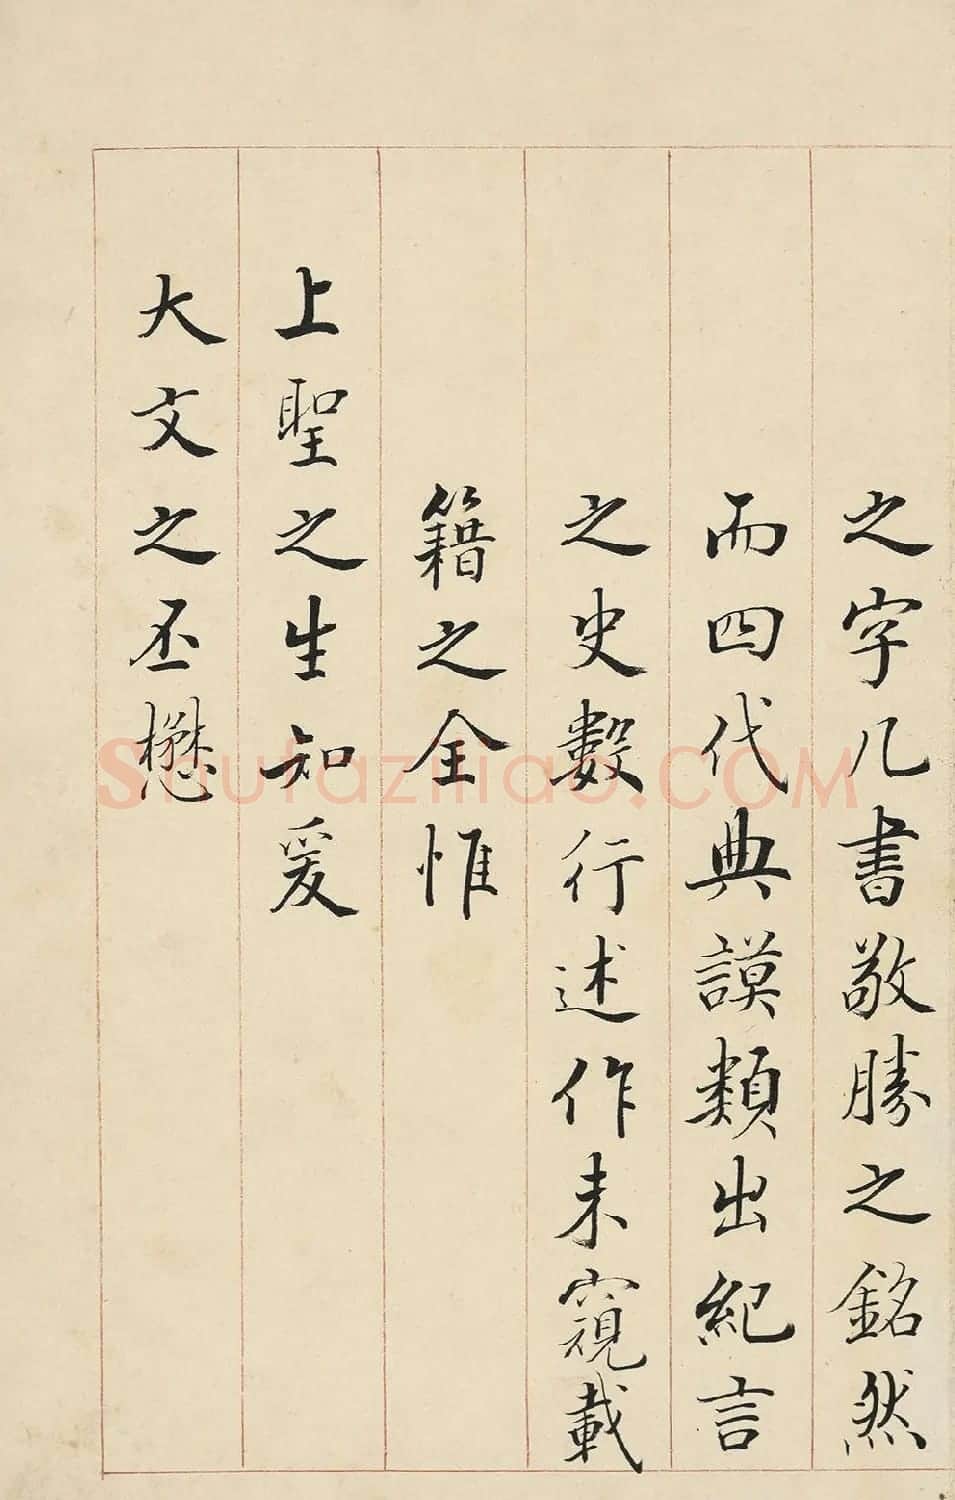 之字几書敬勝之銘然
而四代典謨類出紀言
之史數行述作未窺載
籍之全惟
上聖之生知爰
大文之丕懋
Shufaziliao.COM